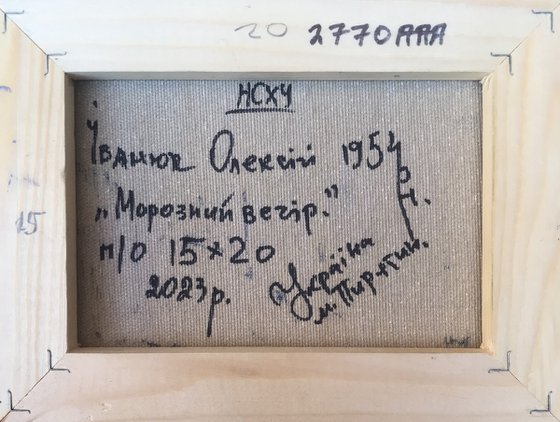 20 2770AAA
НСХУ
Іванюк Олексій 1954 р.н.
„Морозний вечір."
п/о 15×20
2023р.
Україна
м. Пирятин.
15